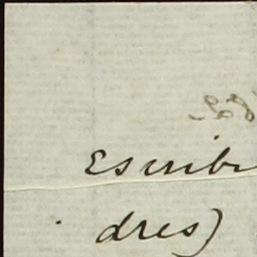 Escribi
dres)